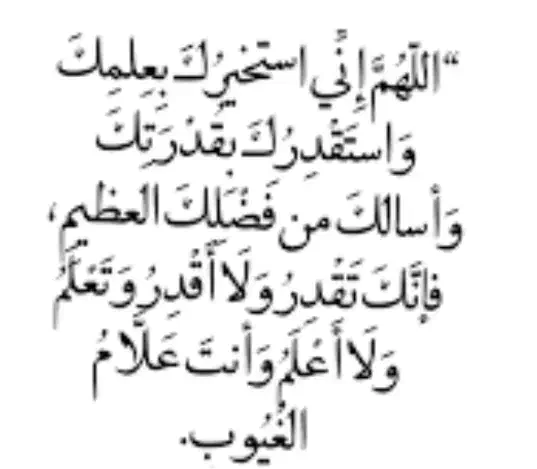 “اللّهُمَّ إِنِّي استخيرُكَ بِعِلمِكَ
وَاستَقْدِرُكَ بِقُدْرَتِكَ
وَأسالكَ من فَضْلِكَ العظيمِ،
فإِنَّكَ تَقْدِرُ وَلَا أَقْدِرُ وَتَعْلَمُ
وَلَا أَعْلَمُ وَأنتَ عَلَّامُ
الغُيُوبِ.